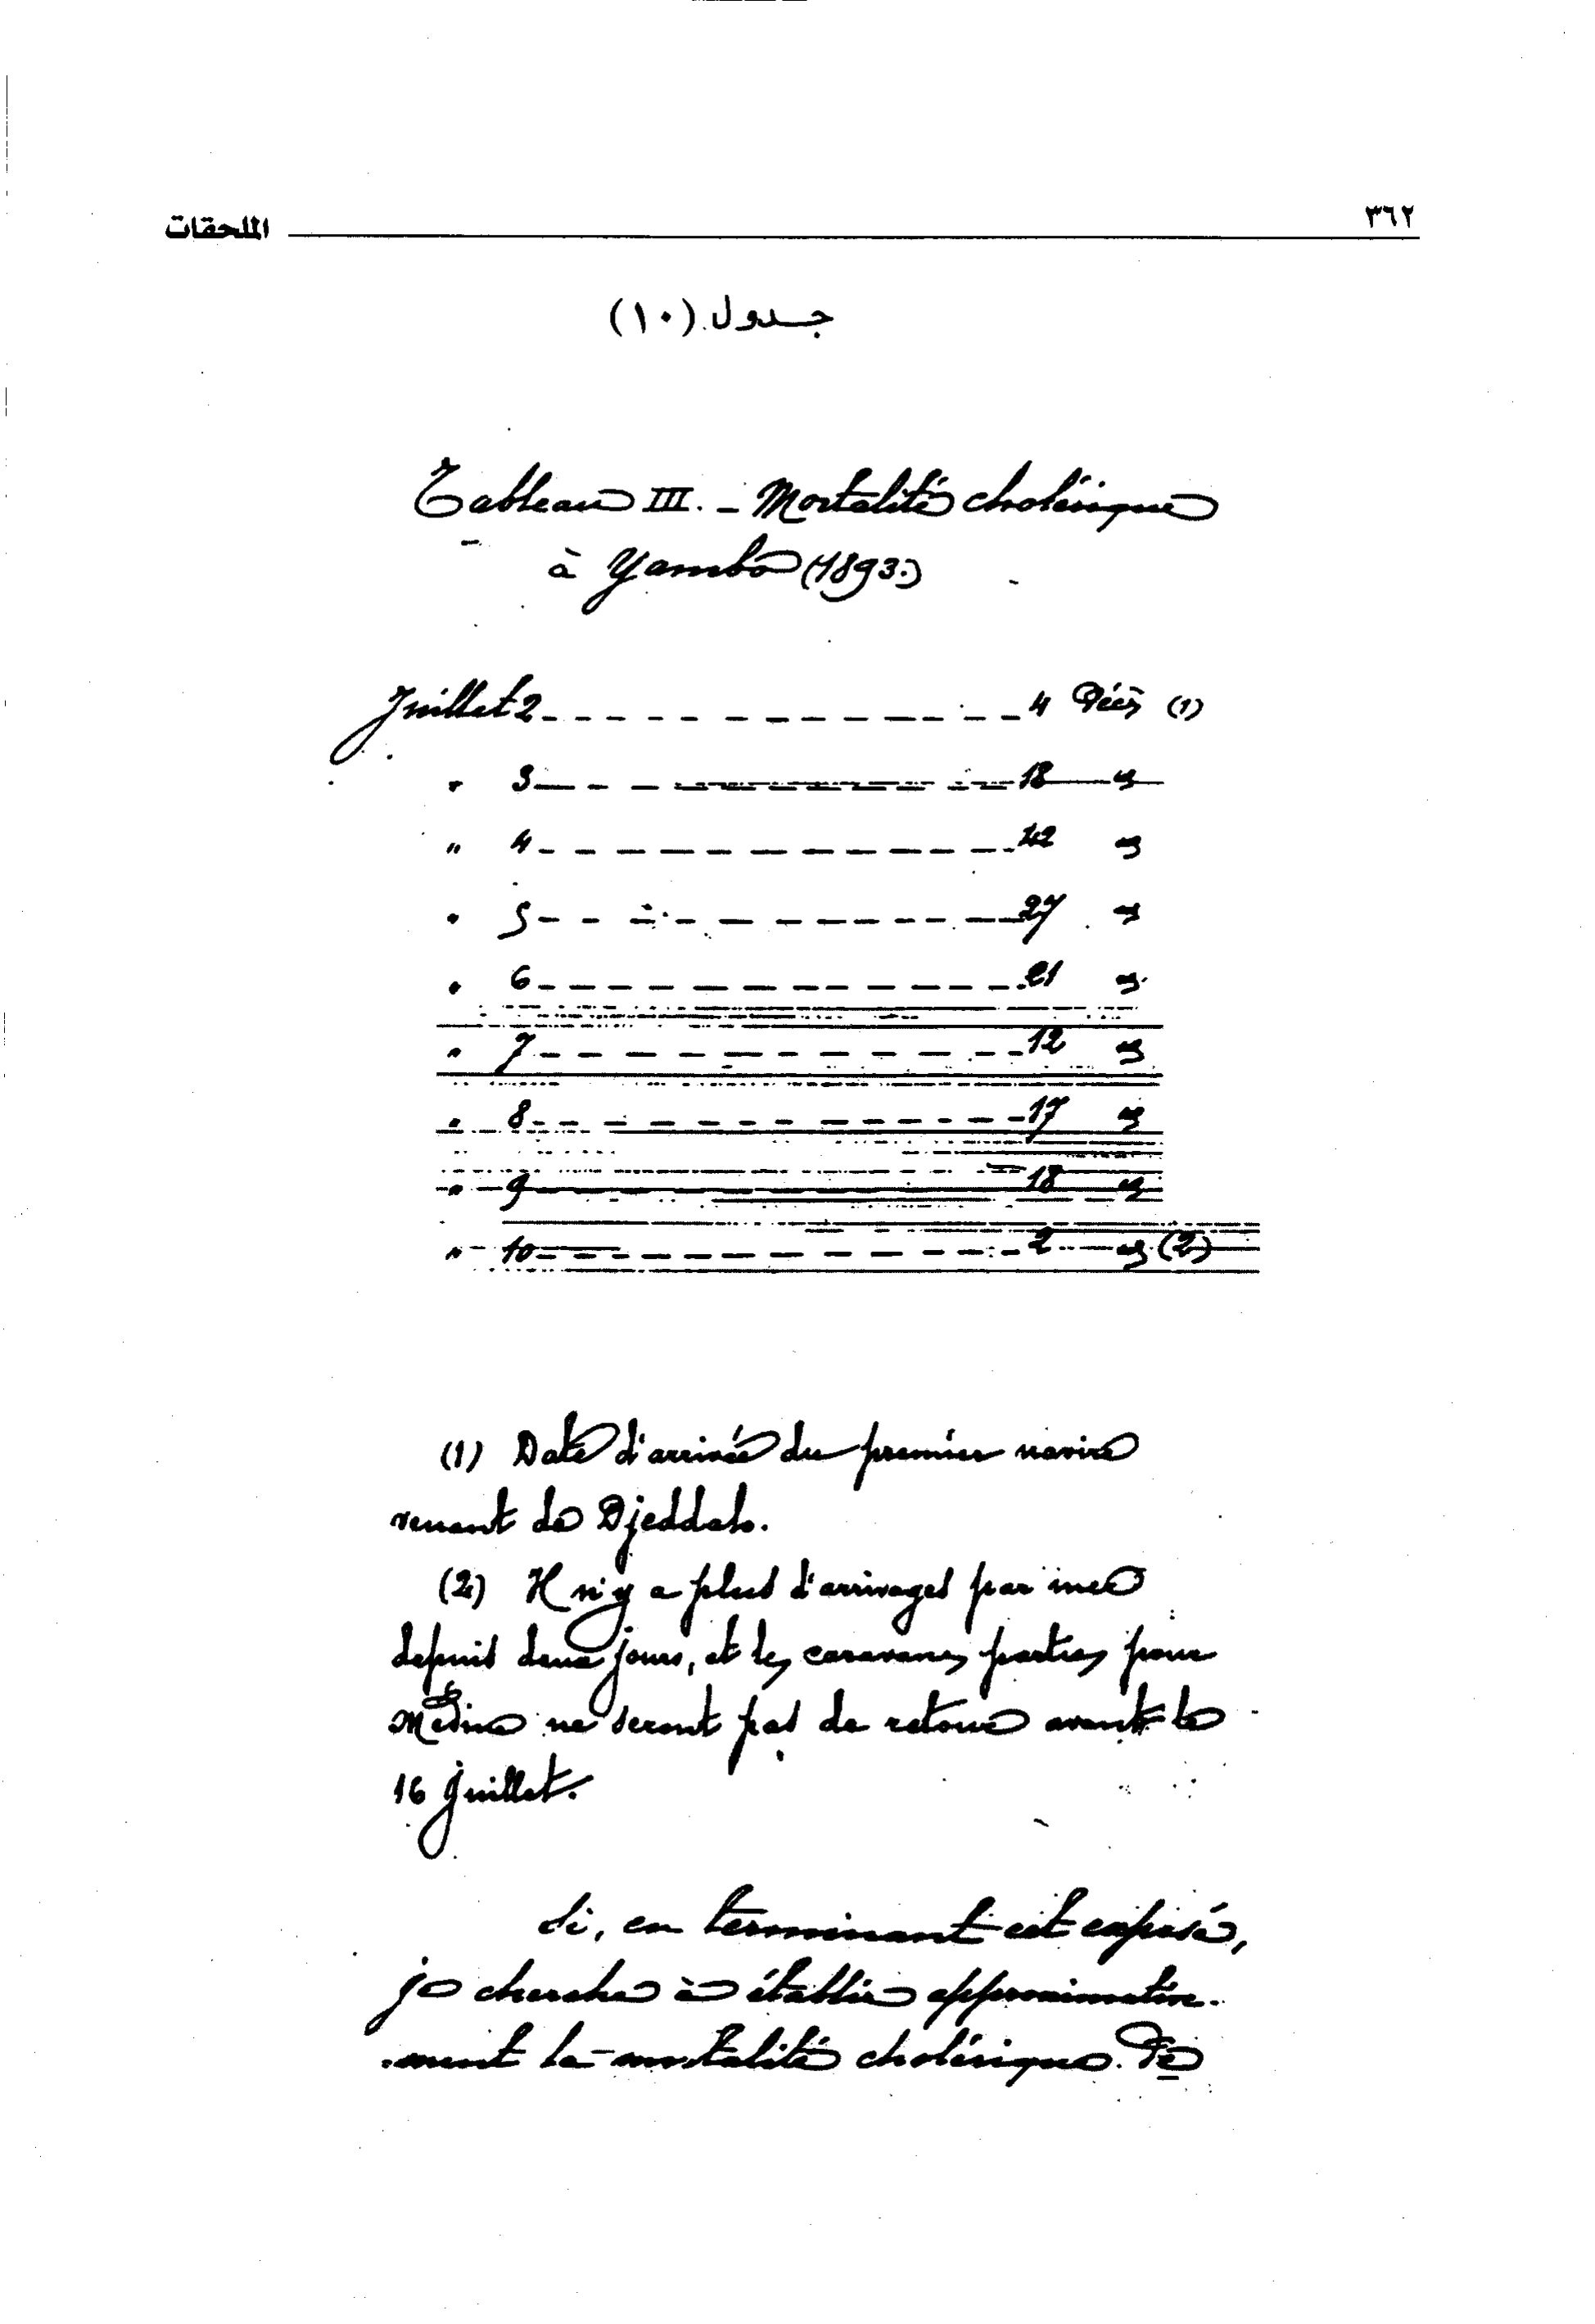 ٣٦٢
الملحقات
جدول (١٠)
Tableau III. - Mortalité cholérique
à Yambo (1893.)
Juillet 2 - - - - - - - - - - - - - 4 Décès (1)
" 3 - - - - - - - - - - - - - 18 "
" 4 - - - - - - - - - - - - - "
" 5 - - - - - - - - - - - - - 27 "
" 6 - - - - - - - - - - - - - 21 "
" 7 - - - - - - - - - - - - - 12 "
" 8 - - - - - - - - - - - - - 17 "
" 9 - - - - - - - - - - - - - 18 "
" 10 - - - - - - - - - - - - - 2 " (2)
(1) Date d'arrivée du premier navire
venant de Djeddah.
(2) Il n'y a plus d'arrivages par mer
depuis deux jours, et les caravanes parties pour
Médine ne seront pas de retour avant le
16 Juillet.
Si, en terminant cet exposé,
je cherche à établir approximative-
-ment la mortalité cholérique.